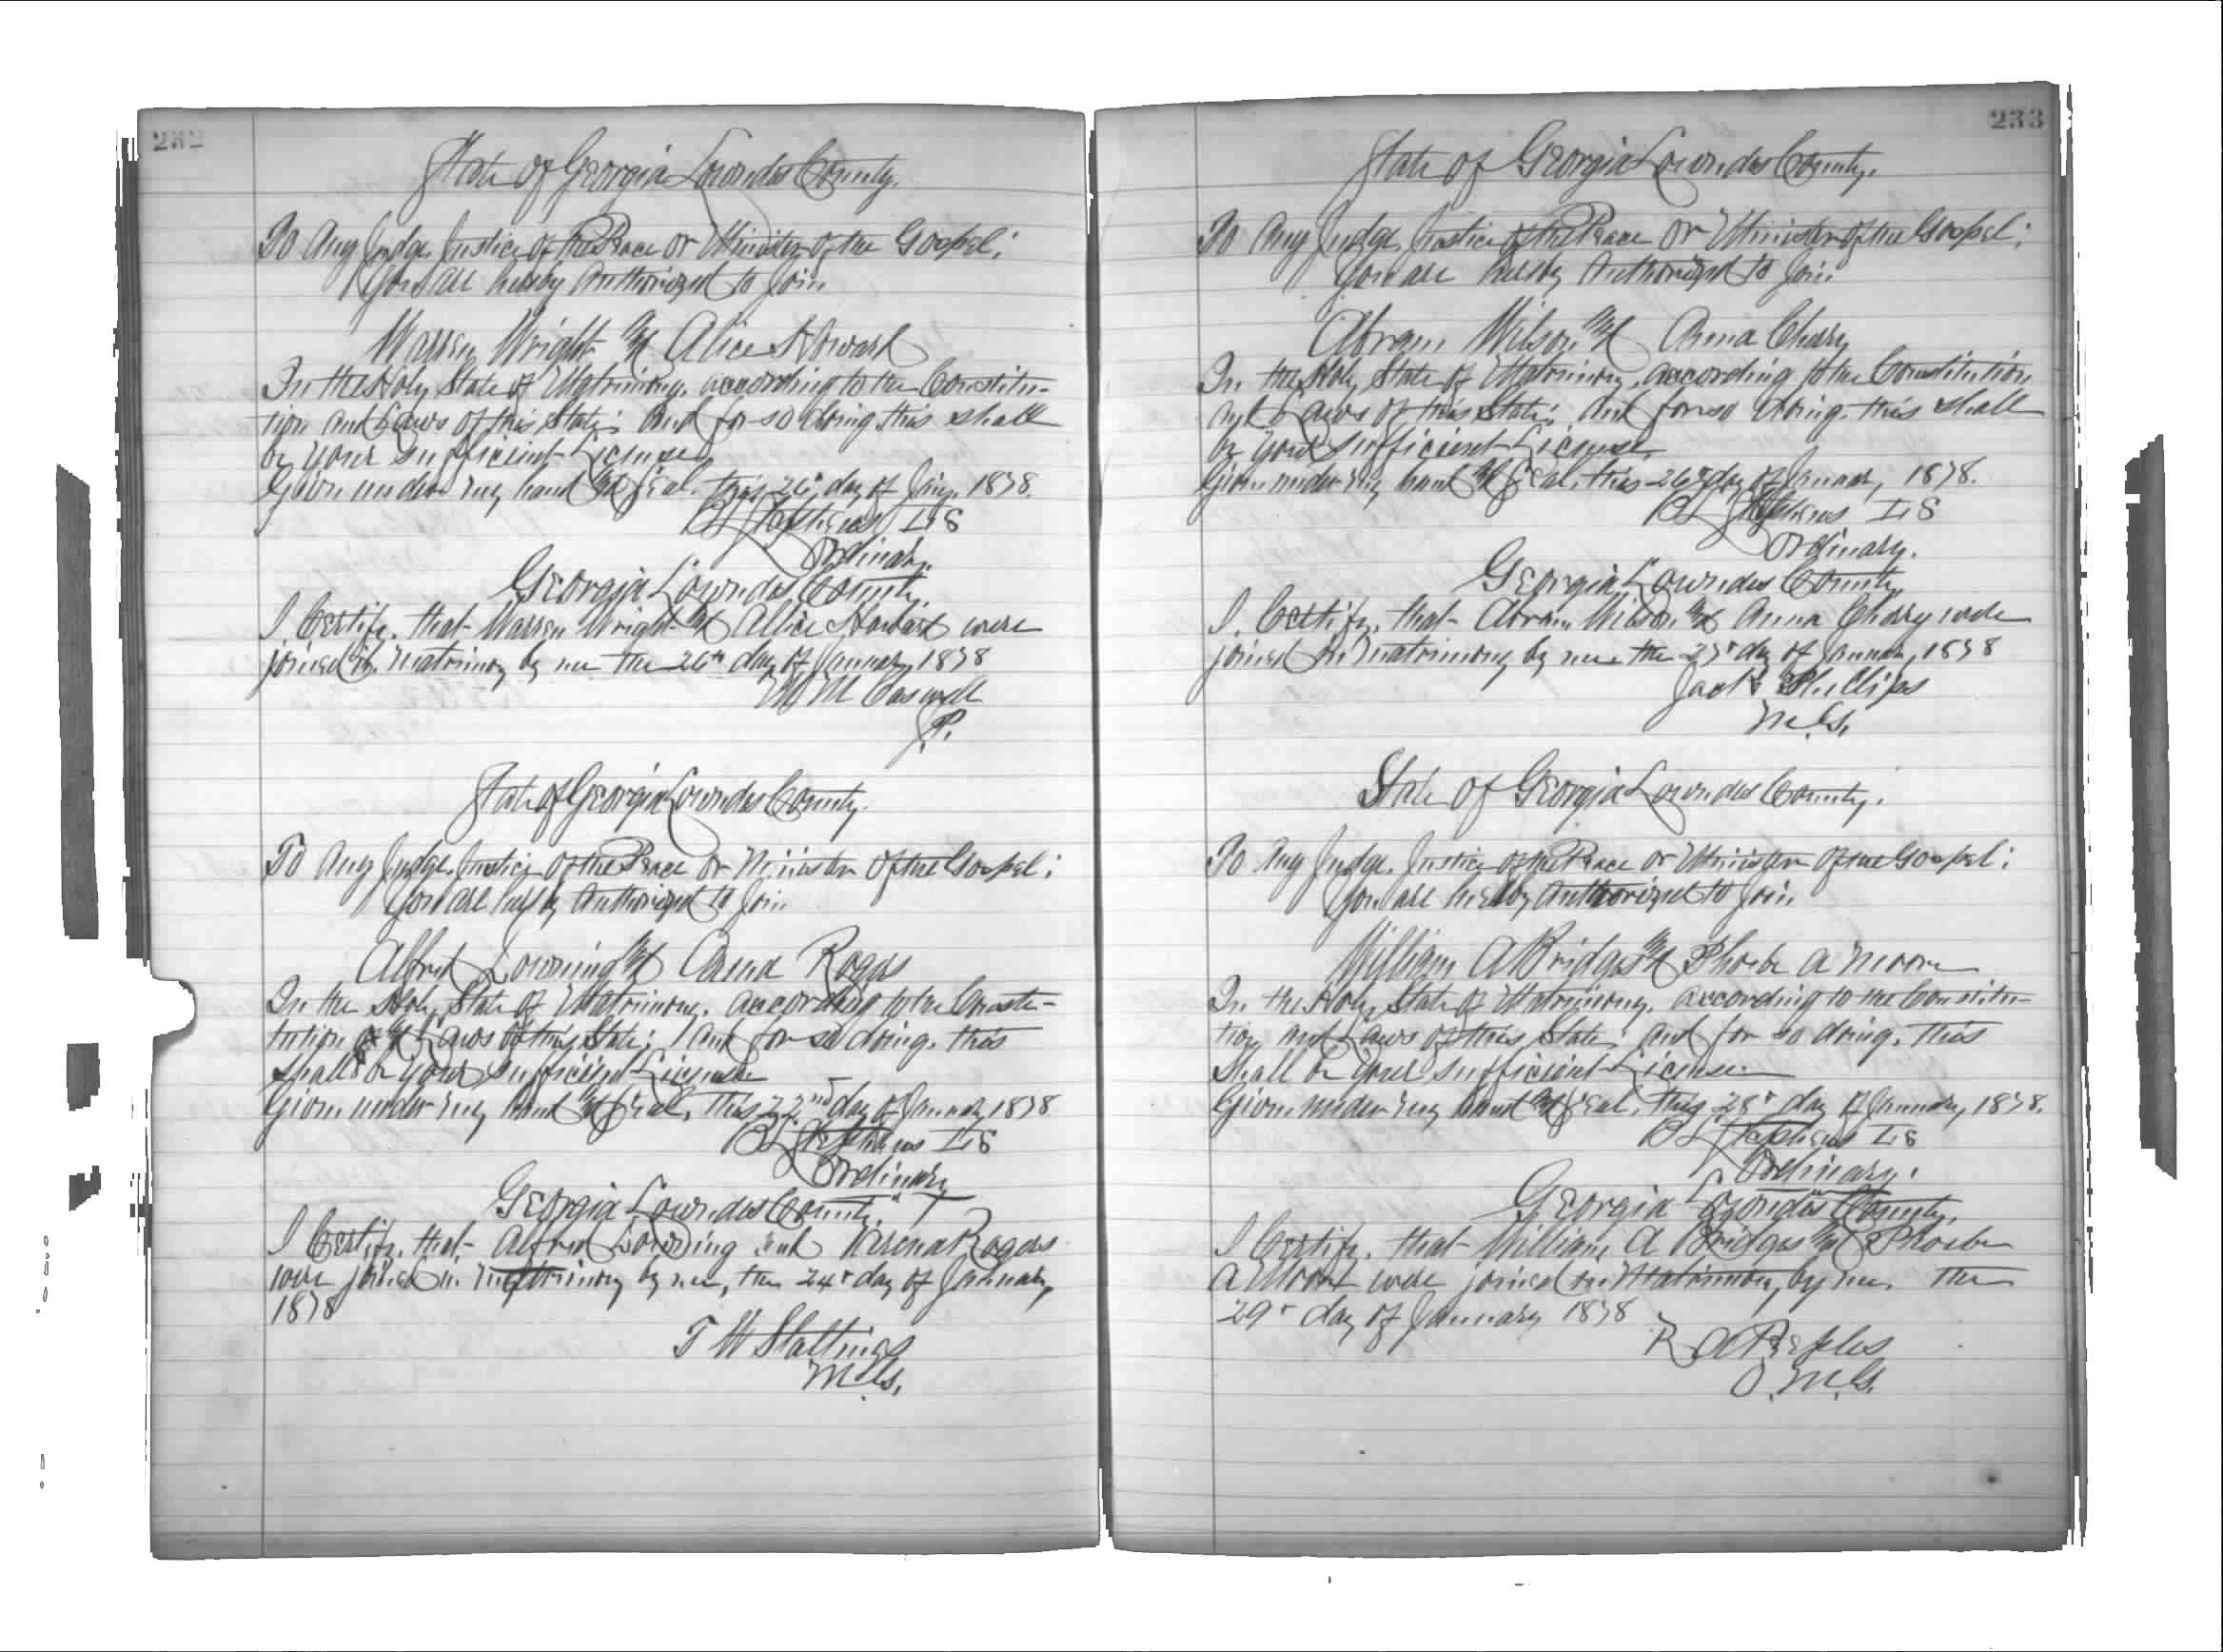 232
State of Georgia Lowndes County.
To Any Judge, Justice of the Peace or Minister of the Gospel:
You are hereby Authorized to join
Warren Wright and Alice Howard
In the Holy State of Matrimony, according to the Constitu-
tion and Laws of this State; and for so doing this shall
be your sufficient License
Given under my hand and seal, this 26th day of Jany. 1878.
Stephens L.S
Ordinary.
Georgia Lowndes County.
I Certify, that Warren Wright and Allice Howard were
joined in matrimony by me the 26th day of January 1878
W M Caswell
J.P.
State of Georgia Lowndes County.
To Any Judge, Justice of the Peace or Minister of the Gospel:
You are hereby Authorized to join
Alfred and Rogers
In the Holy State of Matrimony, according to the Consti-
tution and Laws of this State; and for so doing, this
shall be your sufficient License
Given under my hand and seal, this 22nd day of January 1878
B L Stephens L.S
Ordinary
Georgia Lowndes County.
I Certify, that Alfred and Rogers
were joined in matrimony by me, the 24th day of January,
1878
T W Stallings
M.G.
233
State of Georgia Lowndes County.
To Any Judge, Justice of the Peace or Minister of the Gospel:
You are hereby Authorized to join
Abram Wilson and Anna Cherry
In the Holy State of Matrimony, according to the Constitution
and Laws of this State; and for so doing, this shall
be your sufficient License
Given under my hand and seal, this 26th day of January, 1878.
B L Stephens L.S
Ordinary.
Georgia Lowndes County
I, Certify, that Abram Wilson and Anna Cherry were
joined in matrimony by me the 27th day of January, 1878
Phillips
M.G.
State of Georgia Lowndes County.
To Any Judge, Justice of the Peace or Minister of the Gospel:
You are hereby Authorized to join
William A Bridges and Phoebe A Moore
In the Holy State of Matrimony, according to the Constitu-
tion and Laws of this State; and for so doing, this
shall be your sufficient License
Given under my hand and seal, this 28th day of January, 1878.
B L Stephens L.S
Ordinary.
Georgia Lowndes County,
I Certify, that William A Bridges and Phoebe
A were joined in Matrimony, by me, the
29th day of January 1878
R A Peeples
O.M.G.